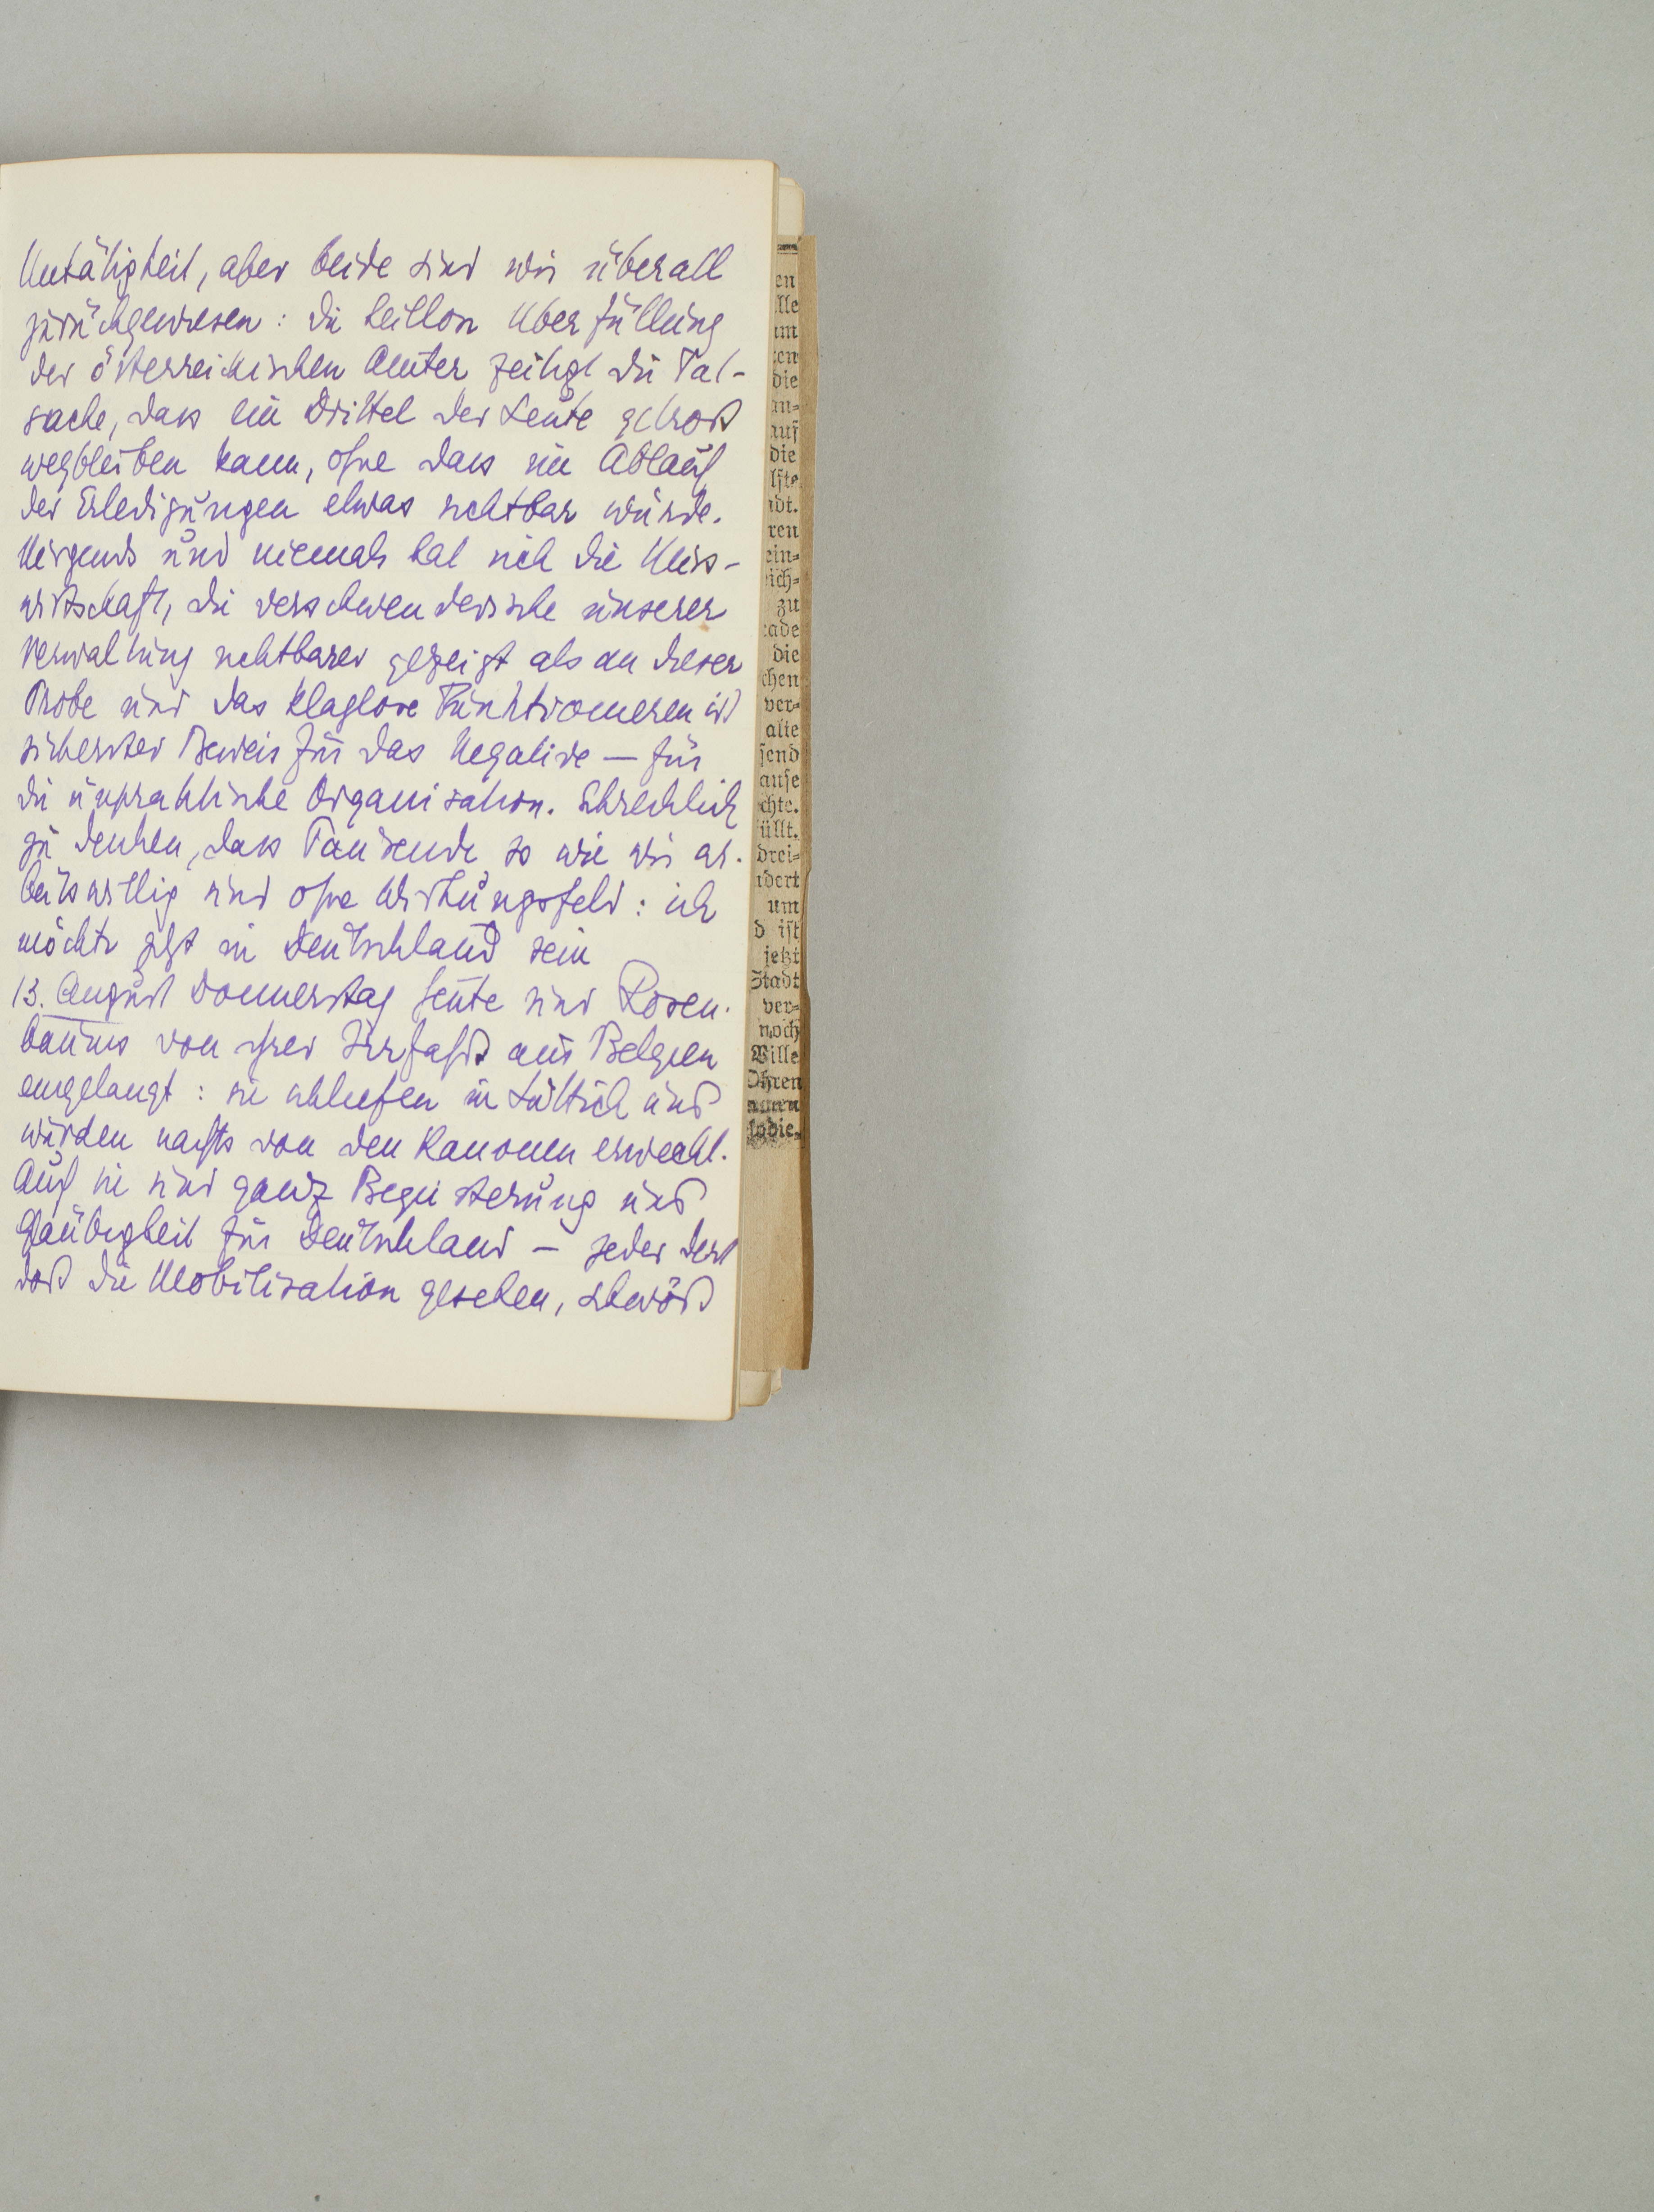 Untätigkeit, aber beide sind wir überall
zurückgewiesen: die heillose Überfüllung
der österreichischen Ämter zeitigt die Tat-
sache, dass ein Drittel der Leute getrost
wegbleiben kann, ohne dass im Ablauf
der Erledigungen etwas sichtbar würde.
Nirgends und niemals hat sich die Miss-
wirtschaft, die verschwenderische unserer
Verwaltung sichtbarer gezeigt als an dieser
Probe und das klaglose Funktionieren ist
sicherster Beweis für das Negative — für
die unpraktische Organisation. Schrecklich
zu denken, dass Tausende so wie wir ar-
beitswillig sind ohne Wirkungsfeld: ich
möchte jetzt in Deutschland sein
13. August Donnerstag heute sind Rosen-
baums von ihrer Irrfahrt aus Belgien
eingelangt: sie schliefen in Lüttich und
wurden nachts von den Kanonen erweckt.
Auch sie sind ganz Begeisterung und
Gläubigkeit für Deutschland — jeder der
dort die Mobilisation gesehen, schwört
en
lle
um
en
die
an=
auf
die
lfte
adt.
ren
ein=
ich=
zu
ade
die
chen
ver=
alte
send
ause
chte.
üllt.
drei=
dert
um
d ist
jetzt
Stadt
ver=
noch
Wille
Ohren